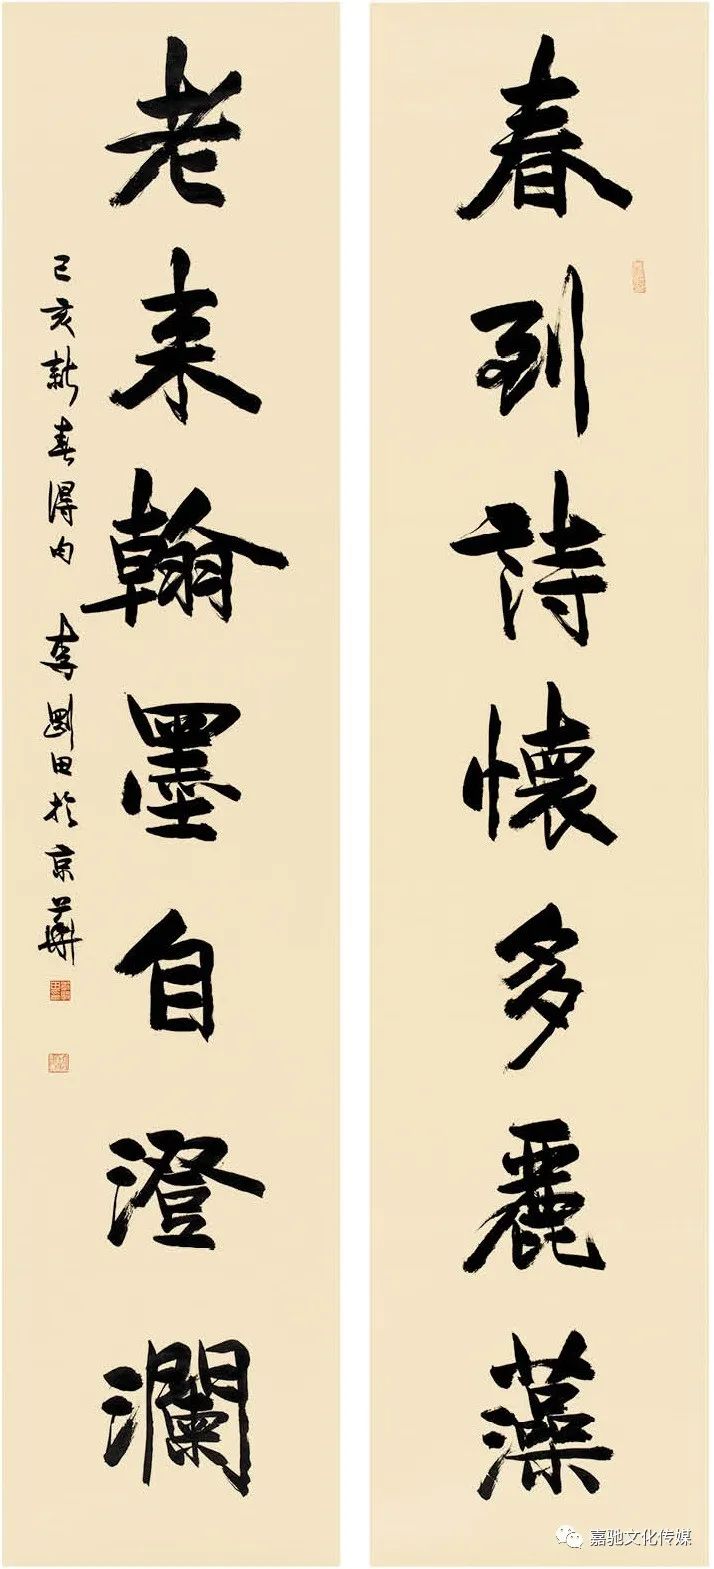 春到詩懷多麗藻
老来翰墨自澄瀾
己亥新春得句 李剛田於京華
嘉驰文化传媒